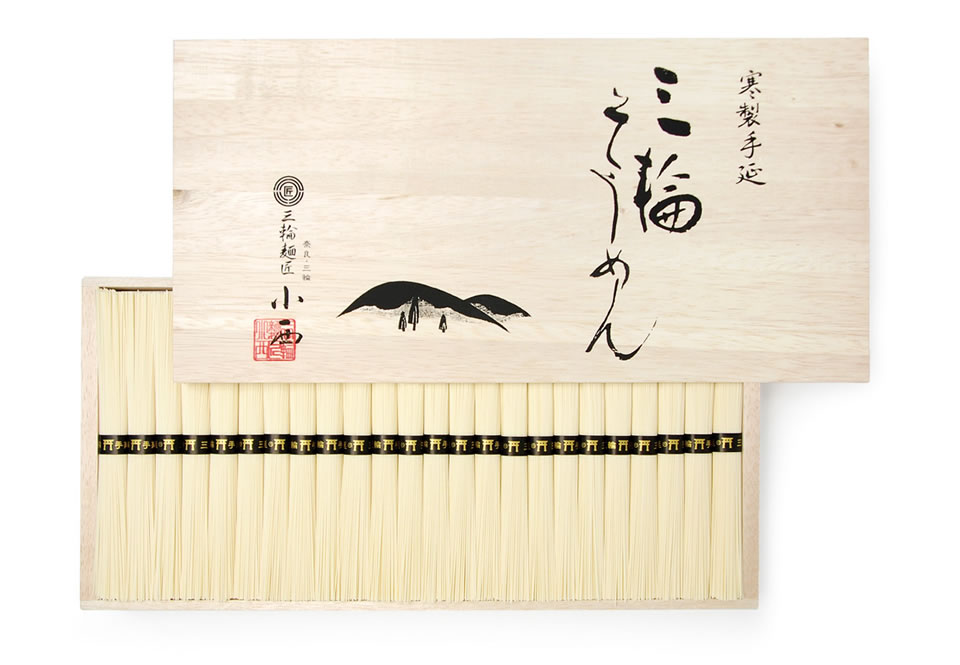 寒製手延
三輪
そうめん
奈良・三輪
匠
三輪麺匠
小西